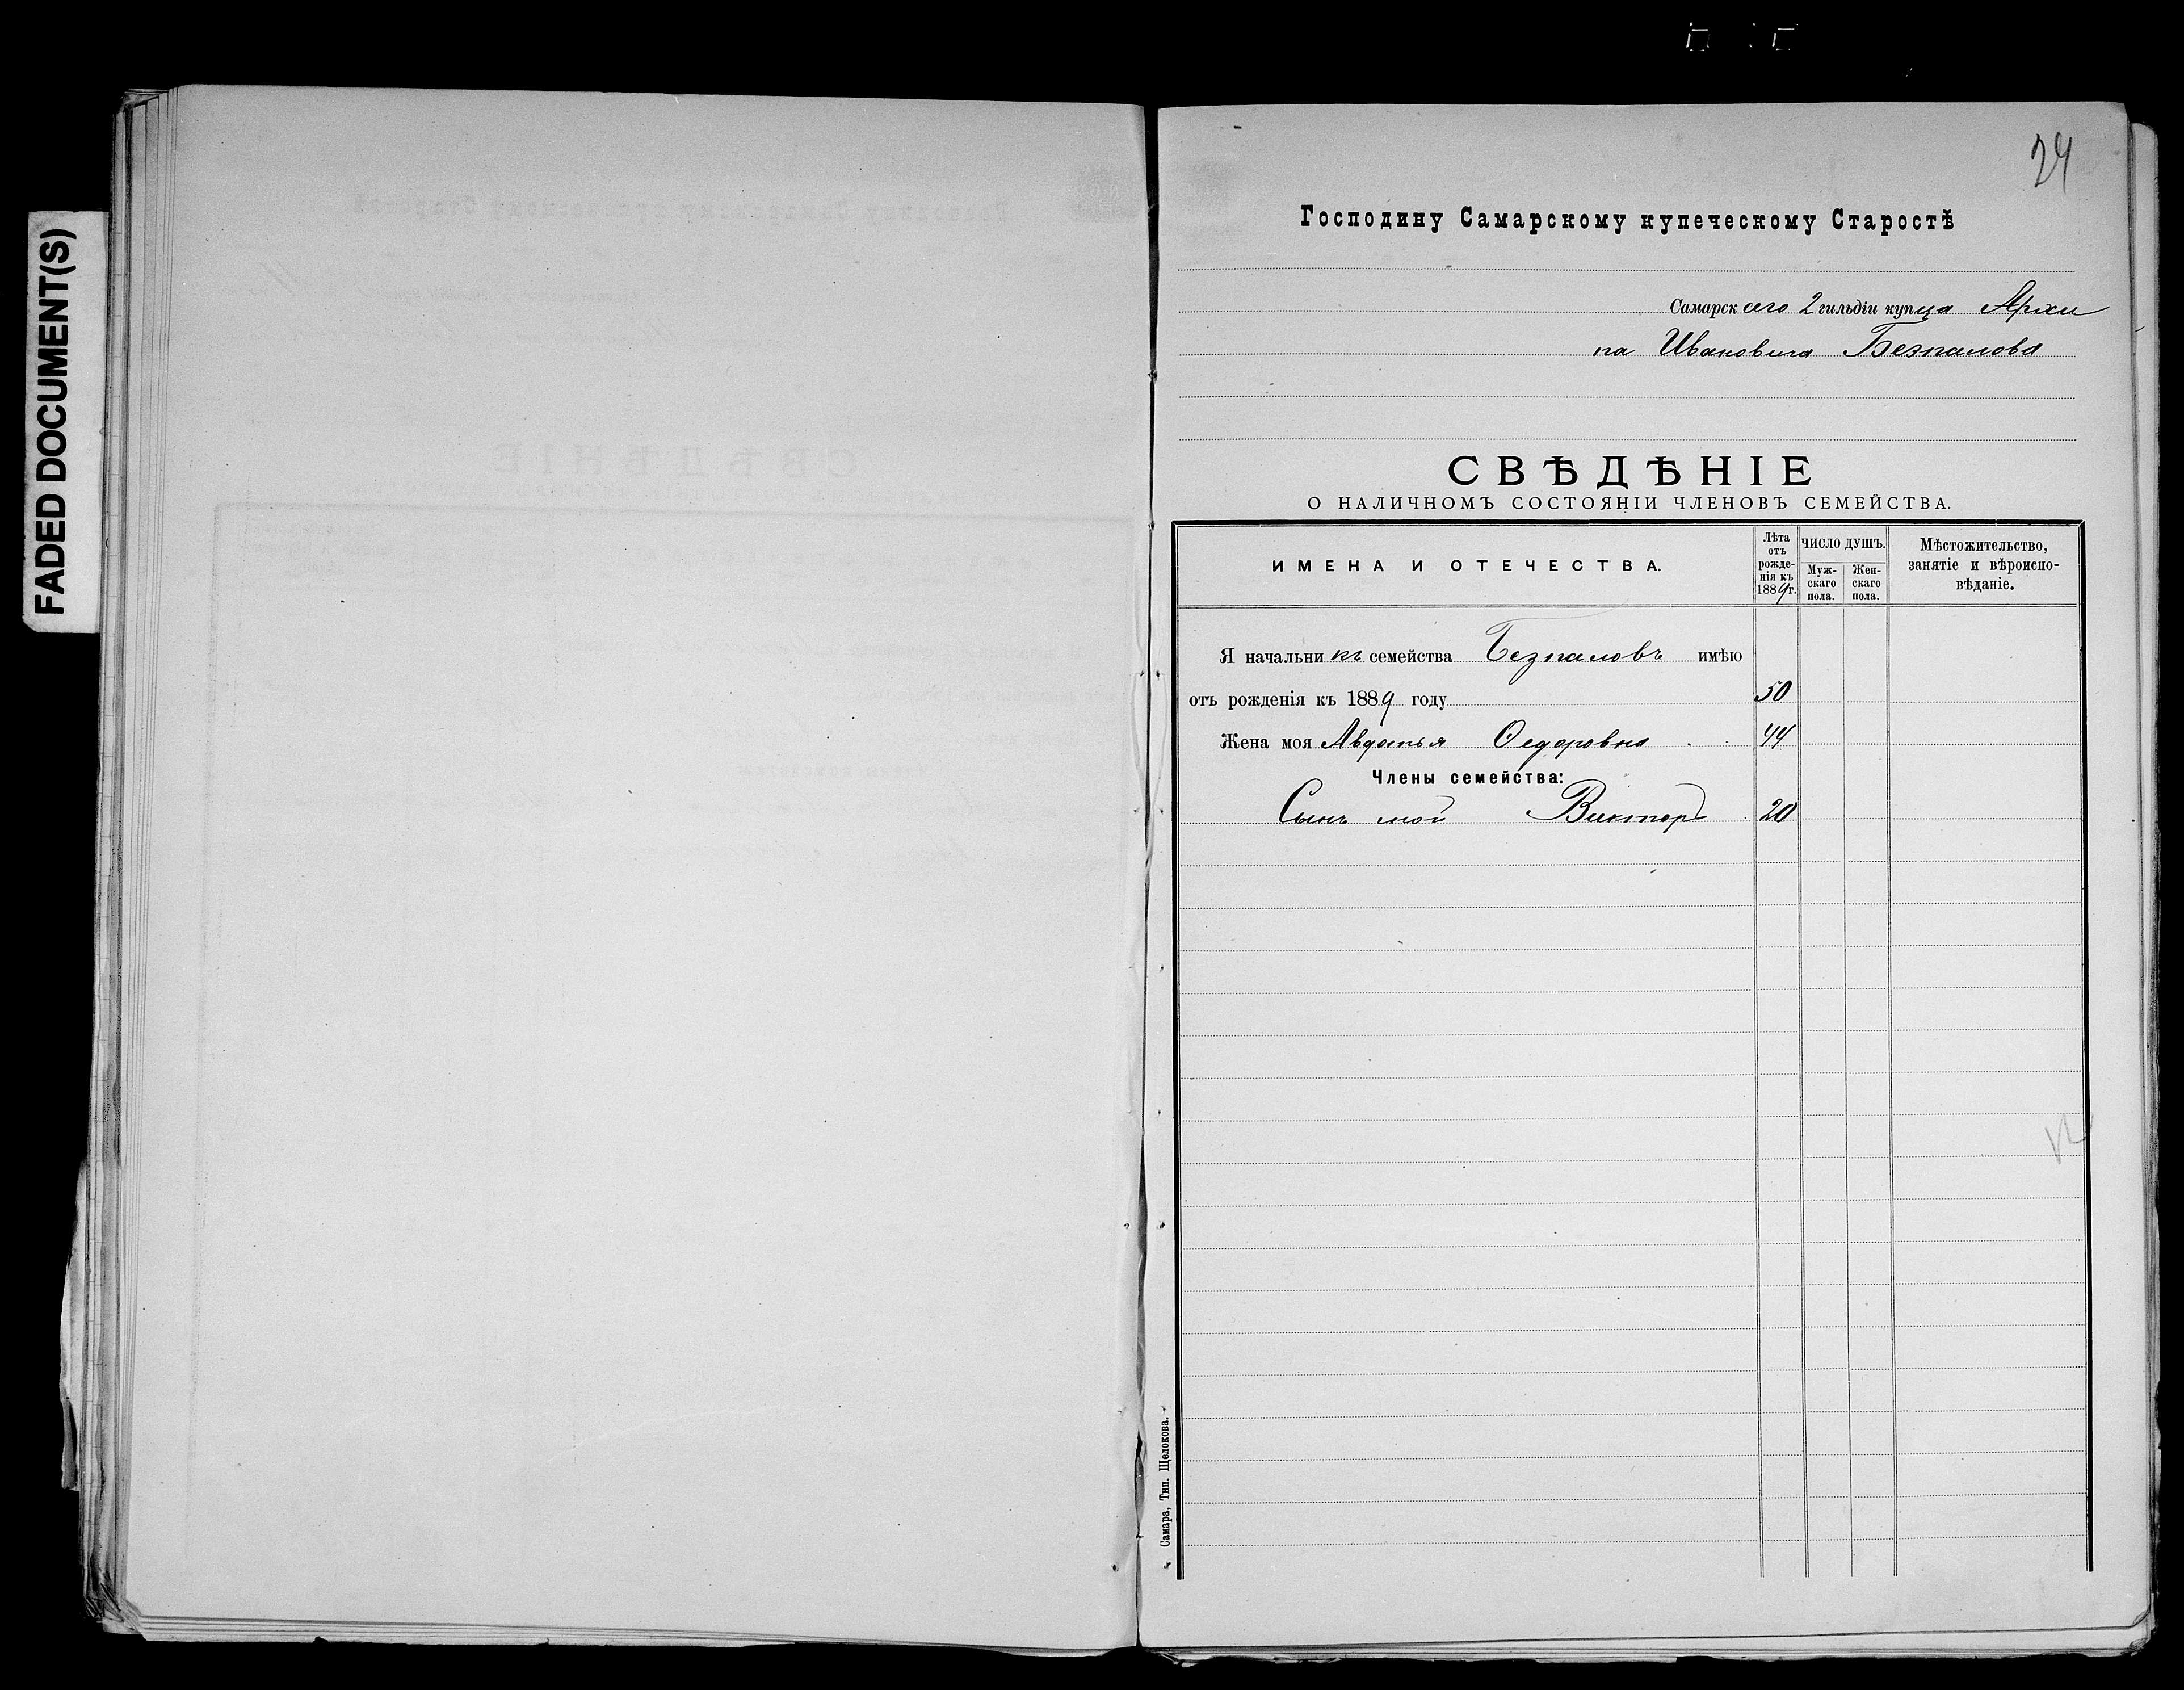 FADED DOCUMENT(S)
24
Господину Самарскому купеческому Старостѣ
Самарскаго 2 гильдіи купца Архи
па Ивановича Безпалова
СВѢДѢНІЕ
О НАЛИЧНОМЪ СОСТОЯНІИ ЧЛЕНОВЪ СЕМЕЙСТВА.
ИМЕНА И ОТЕЧЕСТВА.
Лѣта отъ рожденія къ 1889 г.
ЧИСЛО ДУШЪ.
Мужскаго пола.
Женскаго пола.
Мѣстожительство, занятіе и вѣроисповѣданіе.
Я начальникъ семейства Безпаловъ имѣю
отъ рожденія къ 1889 году 50
Жена моя Авдотья Ѳедоровна 44
Члены семейства:
Сынъ мой Викторъ 20
Самара, Тип. Щелокова.